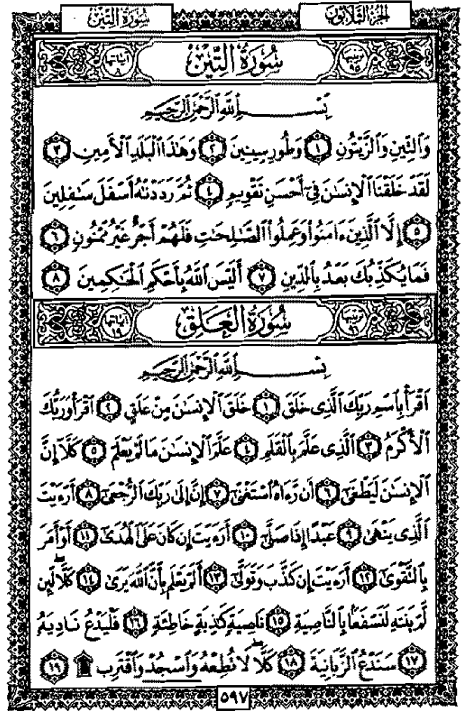 الجزء الثلاثون سورة التين
ترتيبها ٩٥ سُورَةُ التِّينِ آياتها ٨
بِسْمِ اللَّهِ الرَّحْمَٰنِ الرَّحِيمِ
وَالتِّينِ وَالزَّيْتُونِ ١ وَطُورِ سِينِينَ ٢ وَهَٰذَا الْبَلَدِ الْأَمِينِ ٣
لَقَدْ خَلَقْنَا الْإِنسَٰنَ فِي أَحْسَنِ تَقْوِيمٍ ٤ ثُمَّ رَدَدْنَٰهُ أَسْفَلَ سَٰفِلِينَ
٥ إِلَّا الَّذِينَ ءَامَنُوا وَعَمِلُوا الصَّٰلِحَٰتِ فَلَهُمْ أَجْرٌ غَيْرُ مَمْنُونٍ ٦
فَمَا يُكَذِّبُكَ بَعْدُ بِالدِّينِ ٧ أَلَيْسَ اللَّهُ بِأَحْكَمِ الْحَٰكِمِينَ ٨
ترتيبها ٩٦ سُورَةُ الْعَلَقِ آياتها ١٩
بِسْمِ اللَّهِ الرَّحْمَٰنِ الرَّحِيمِ
اقْرَأْ بِاسْمِ رَبِّكَ الَّذِي خَلَقَ ١ خَلَقَ الْإِنسَٰنَ مِنْ عَلَقٍ ٢ اقْرَأْ وَرَبُّكَ
الْأَكْرَمُ ٣ الَّذِي عَلَّمَ بِالْقَلَمِ ٤ عَلَّمَ الْإِنسَٰنَ مَا لَمْ يَعْلَمْ ٥ كَلَّا إِنَّ
الْإِنسَٰنَ لَيَطْغَىٰ ٦ أَن رَّءَاهُ اسْتَغْنَىٰ ٧ إِنَّ إِلَىٰ رَبِّكَ الرُّجْعَىٰ ٨ أَرَءَيْتَ
الَّذِي يَنْهَىٰ ٩ عَبْدًا إِذَا صَلَّىٰ ١٠ أَرَءَيْتَ إِن كَانَ عَلَى الْهُدَىٰ ١١ أَوْ أَمَرَ
بِالتَّقْوَىٰ ١٢ أَرَءَيْتَ إِن كَذَّبَ وَتَوَلَّىٰ ١٣ أَلَمْ يَعْلَم بِأَنَّ اللَّهَ يَرَىٰ ١٤ كَلَّا لَئِن
لَّمْ يَنتَهِ لَنَسْفَعًا بِالنَّاصِيَةِ ١٥ نَاصِيَةٍ كَٰذِبَةٍ خَاطِئَةٍ ١٦ فَلْيَدْعُ نَادِيَهُ
١٧ سَنَدْعُ الزَّبَانِيَةَ ١٨ كَلَّا لَا تُطِعْهُ وَاسْجُدْ وَاقْتَرِب ۩ ١٩
٥٩٧